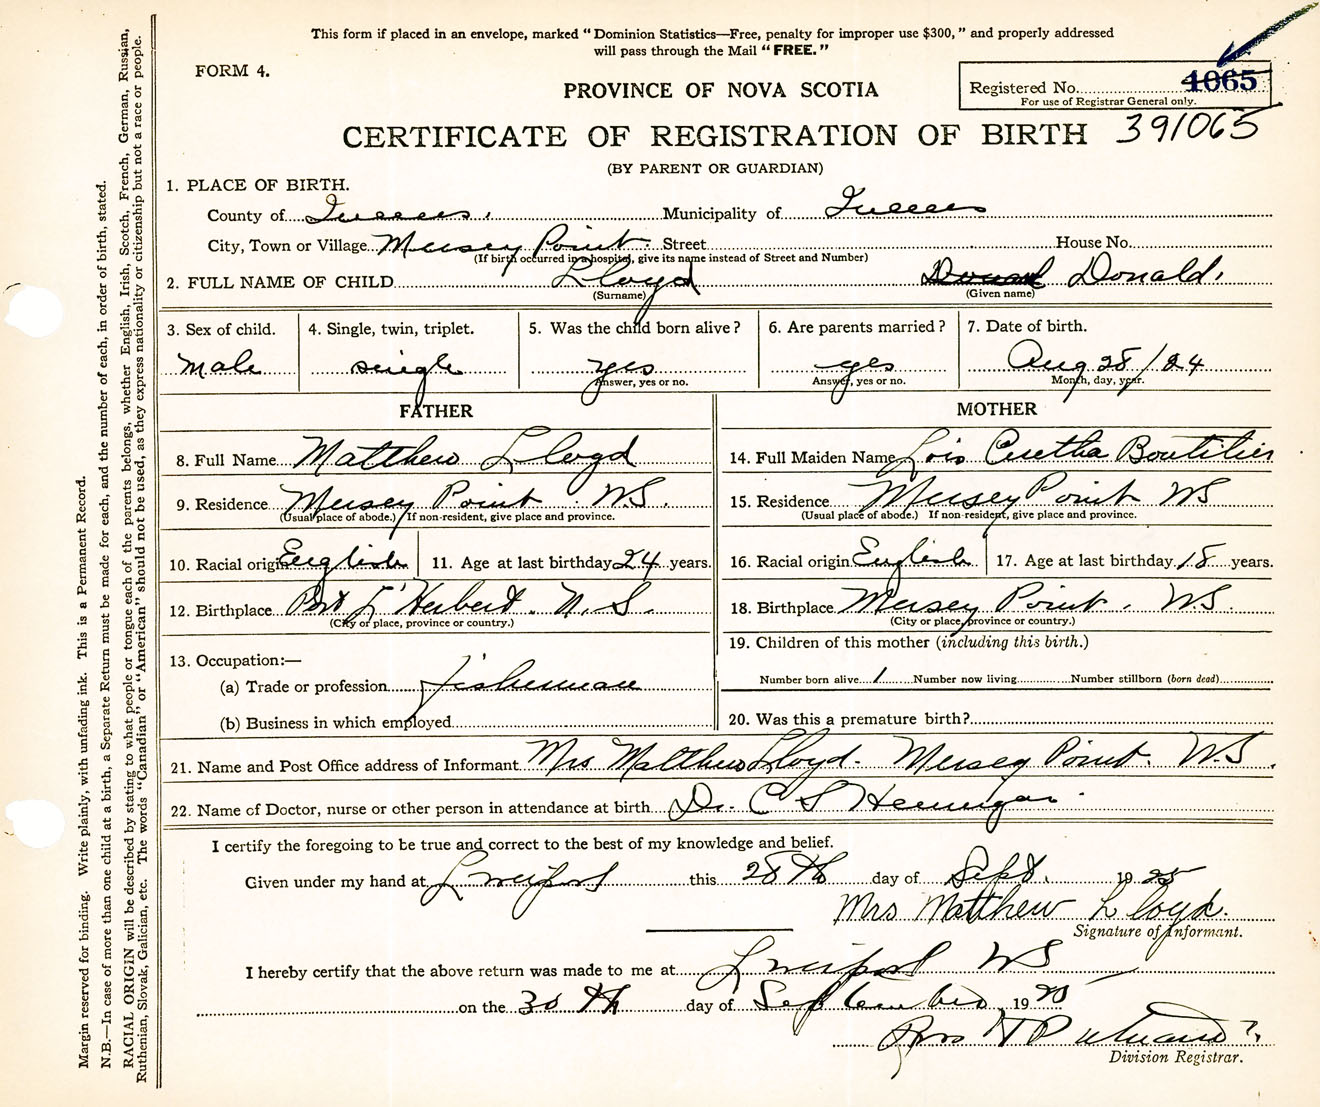 This form if placed in an envelope, marked "Dominion Statistics—Free, penalty for improper use $300," and properly addressed
will pass through the Mail "FREE."
FORM 4.
PROVINCE OF NOVA SCOTIA
Registered No. 1065
For use of Registrar General only.
CERTIFICATE OF REGISTRATION OF BIRTH 391065
(BY PARENT OR GUARDIAN)
1. PLACE OF BIRTH.
County of Queens. Municipality of Queens
City, Town or Village Mersey Point. Street House No.
(If birth occurred in a hospital, give its name instead of Street and Number)
2. FULL NAME OF CHILD Lloyd Donald.
(Surname) (Given name)
3. Sex of child. 4. Single, twin, triplet. 5. Was the child born alive? 6. Are parents married? 7. Date of birth.
male single yes yes Aug 28/24
Answer, yes or no. Answer, yes or no. Month, day, year.
FATHER MOTHER
8. Full Name Matthew Lloyd 14. Full Maiden Name Lois Boutilier
9. Residence Mersey Point N.S. 15. Residence Mersey Point NS
(Usual place of abode.) If non-resident, give place and province. (Usual place of abode.) If non-resident, give place and province.
10. Racial origin English 11. Age at last birthday 24 years. 16. Racial origin English 17. Age at last birthday 18 years.
12. Birthplace Port L'Hebert. N.S. 18. Birthplace Mersey Point, NS.
(City or place, province or country.) (City or place, province or country.)
13. Occupation:— 19. Children of this mother (including this birth.)
(a) Trade or profession fisherman Number born alive 1 Number now living Number stillborn (born dead)
(b) Business in which employed 20. Was this a premature birth?
21. Name and Post Office address of Informant Mrs Matthew Lloyd. Mersey Point. N.S.
22. Name of Doctor, nurse or other person in attendance at birth Dr. C S Hennigar.
I certify the foregoing to be true and correct to the best of my knowledge and belief.
Given under my hand at Liverpool this 28th day of Sept. 1925
Mrs Matthew Lloyd.
Signature of Informant.
I hereby certify that the above return was made to me at Liverpool NS
on the 30th day of September 1925
Division Registrar.
Margin reserved for binding. Write plainly, with unfading ink. This is a Permanent Record.
N.B.—In case of more than one child at a birth, a Separate Return must be made for each, and the number of each, in order of birth, stated.
RACIAL ORIGIN will be described by stating to what people or tongue each of the parents belongs, whether English, Irish, Scotch, French, German, Russian,
Ruthenian, Slovak, Galician, etc. The words "Canadian" or "American" should not be used, as they express nationality or citizenship but not a race or people.